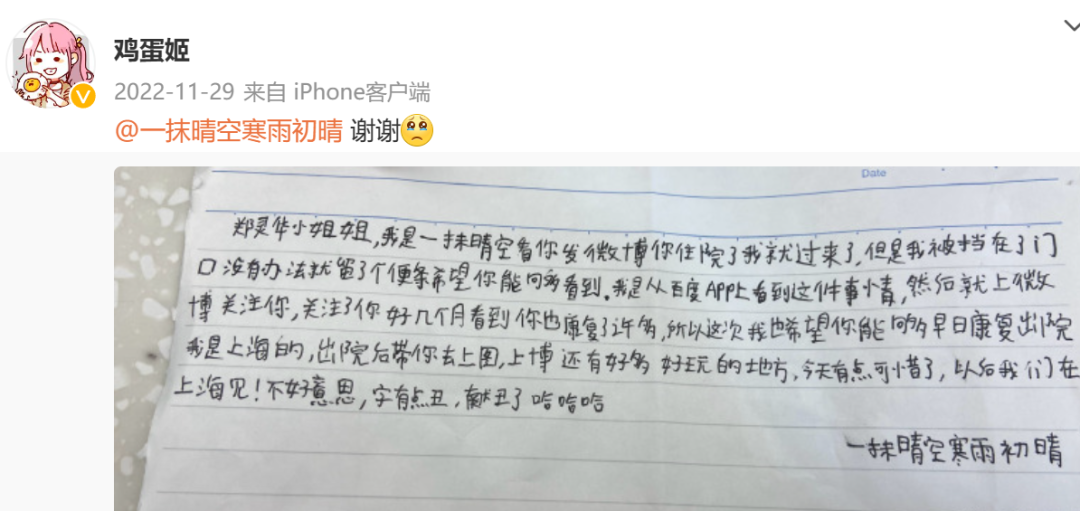 鸡蛋姬
2022-11-29 来自 iPhone客户端
@一抹晴空寒雨初晴 谢谢
Date
郑灵华小姐姐,我是一抹晴空看你发微博你住院了我就过来了,但是我被挡在了门
口没有办法就留了个便条希望你能够看到。我是从百度APP上看到这件事情,然后就上微
博关注你,关注了你好几个月看到你也康复了许多,所以这次我也希望你能够早日康复出院
我是上海的,出院后带你去上图,上博还有好多好玩的地方,今天有点可惜了,以后我们在
上海见!不好意思,字有点丑,献丑了哈哈哈
一抹晴空寒雨初晴